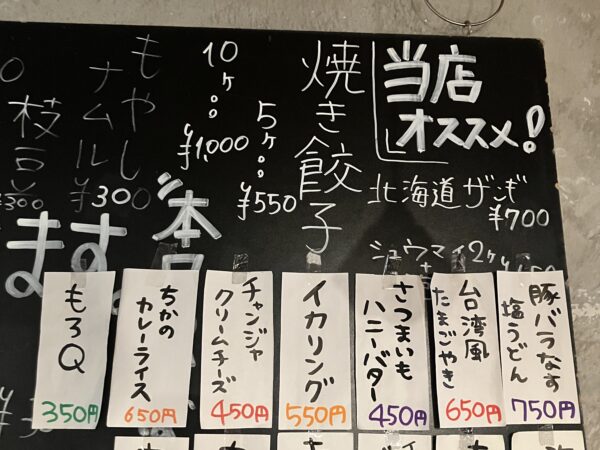 当店
オススメ!
北海道ザンギ
¥700
シュウマイ2ヶ
焼き餃子
5ヶ:
¥550
10ヶ:
¥1,000
もやし
ナムル
¥300
枝豆
¥300
本
ます。
豚バラなす
塩うどん
750円
台湾風
たまごやき
650円
さつまいも
ハニーバター
450円
イカリング
550円
チャンジャ
クリームチーズ
450円
ちかの
カレーライス
650円
もろQ
350円